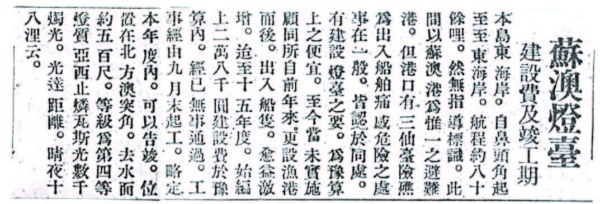 蘇澳燈臺
建設費及竣工期
本島東海岸。自鼻頭角起
至至東海岸。航程約八十
餘哩。然無指導標識。此
間以蘇澳港爲惟一之避難
港。但港口有三仙臺險礁
爲出入船舶痛感危險之處
事在一般。皆認於同處。
有建設燈臺之要。爲豫算
上之便宜。至今當未實施
顧同所自前年來。更設漁港
而後。出入船隻。愈益激
增。迨至十五年度。始編
上二萬八千圓建設費於豫
算內。經已無事通過。工
事經由九月末起工。略定
本年度內。可以告竣。位
置在北方澳突角。去水面
約五百尺。等級爲第四等
燈質亞西止燐瓦斯光數千
燭光。光達距離。晴夜十
八浬云。